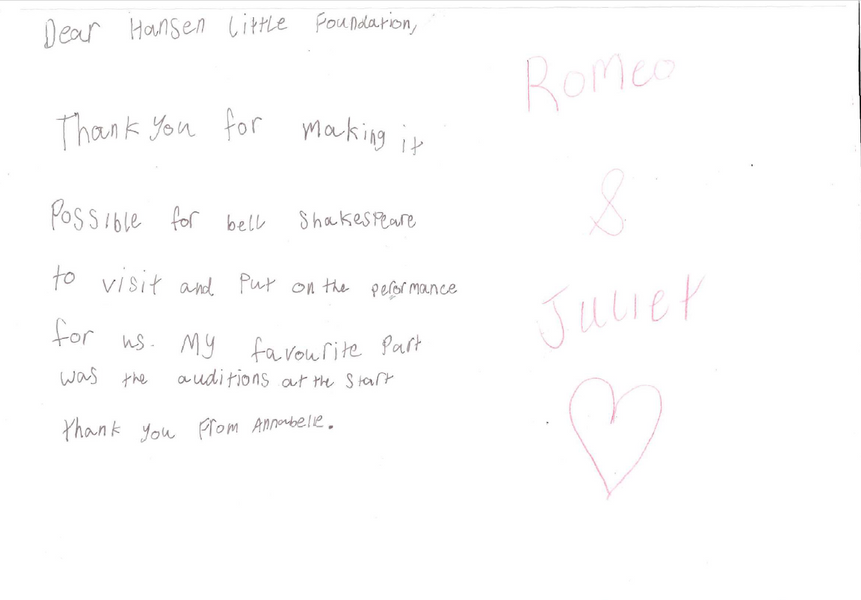 Dear Hansen Little Foundation,
Thank you for making it
Possible for bell Shakespeare
to visit and Put on the peformance
for us. My favourite Part
was the auditions at the Start
thank you From Annabelle.
Romeo
&
Juliet